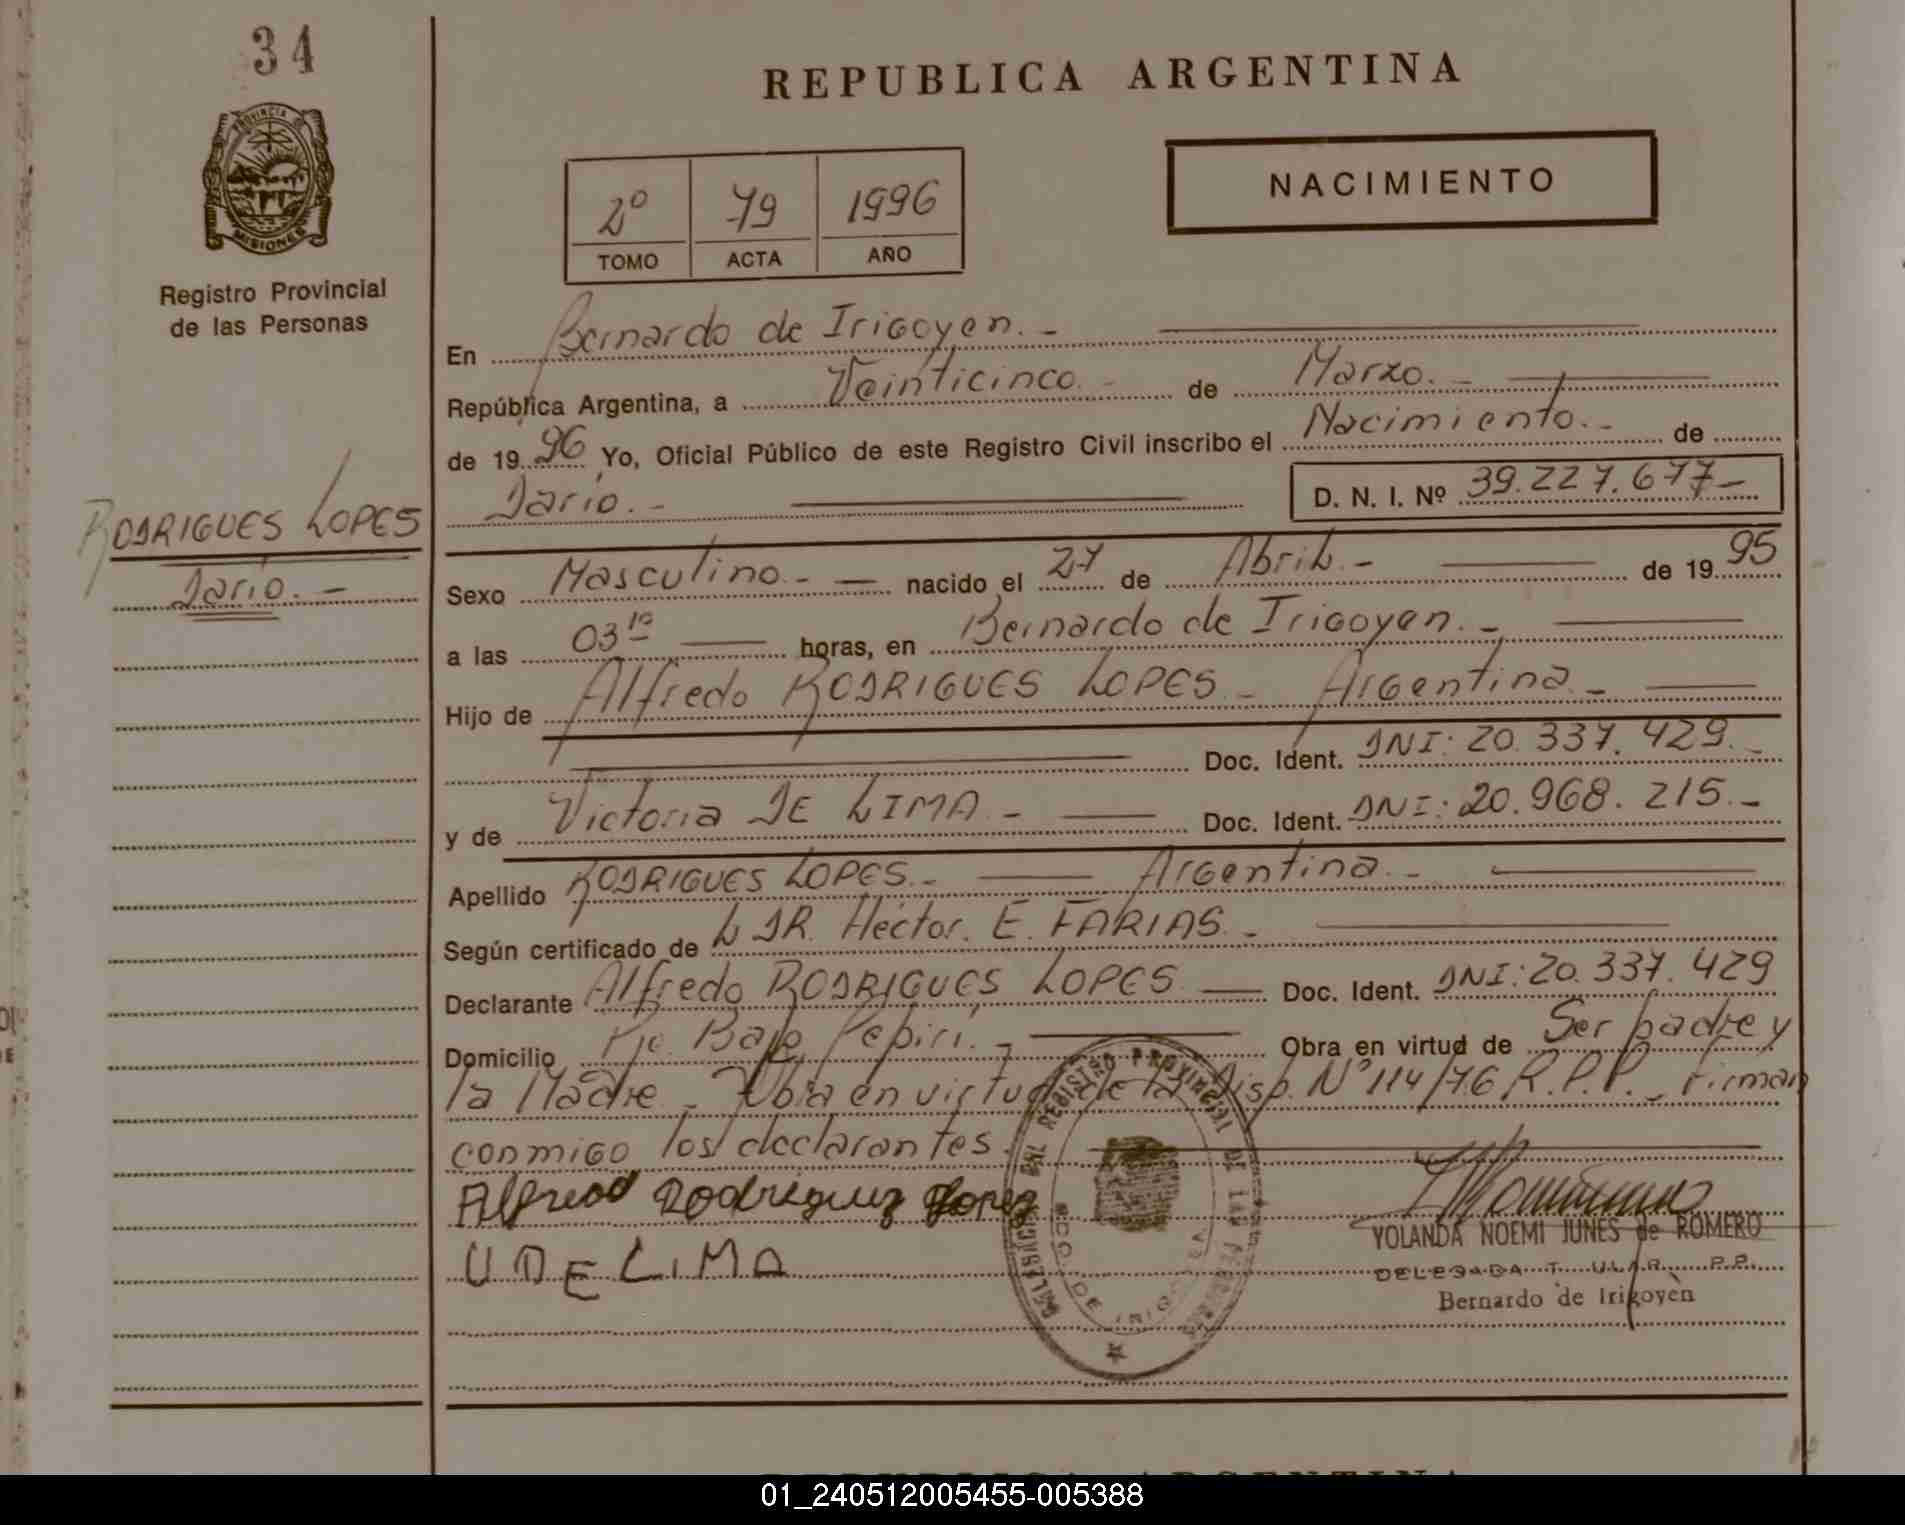 34
PROVINCIA DE
MISIONES
Registro Provincial
de las Personas
RODRIGUES LOPES
Darío.-
REPUBLICA ARGENTINA
NACIMIENTO
2º 79 1996
TOMO ACTA AÑO
En Bernardo de Irigoyen.-
República Argentina, a Veinticinco.- de Marzo.-
de 1996 Yo, Oficial Público de este Registro Civil inscribo el Nacimiento.- de
Darío.- D. N. I. Nº 39.227.677-
Sexo Masculino.- nacido el 27 de Abril.- de 1995
a las 03 10 horas, en Bernardo de Irigoyen.-
Hijo de Alfredo RODRIGUES LOPES.- Argentina.-
Doc. Ident. DNI: 20.337.429.-
y de Victoria DE LIMA.- Doc. Ident. DNI: 20.968.215.-
Apellido RODRIGUES LOPES.- Argentina.-
Según certificado de DR. Héctor. E. FARIAS.-
Declarante Alfredo RODRIGUES LOPES Doc. Ident. DNI: 20.337.429
Domicilio Pje. Bajo Pepirí.- Obra en virtud de Ser padre y
la Madre.- Obra en virtud de la Disp. Nº 114/76 R.P.P.- Firman
conmigo los declarantes.
Alfreod Rodriguez Lopez
V DE LIMA
DELEGACION DEL REGISTRO PROVINCIAL DE LAS PERSONAS
BDO. DE IRIGOYEN
YOLANDA NOEMI JUNES de ROMERO
DELEGADA TITULAR R.P.P.
Bernardo de Irigoyen
REPUBLICA ARGENTINA
01_240512005455-005388